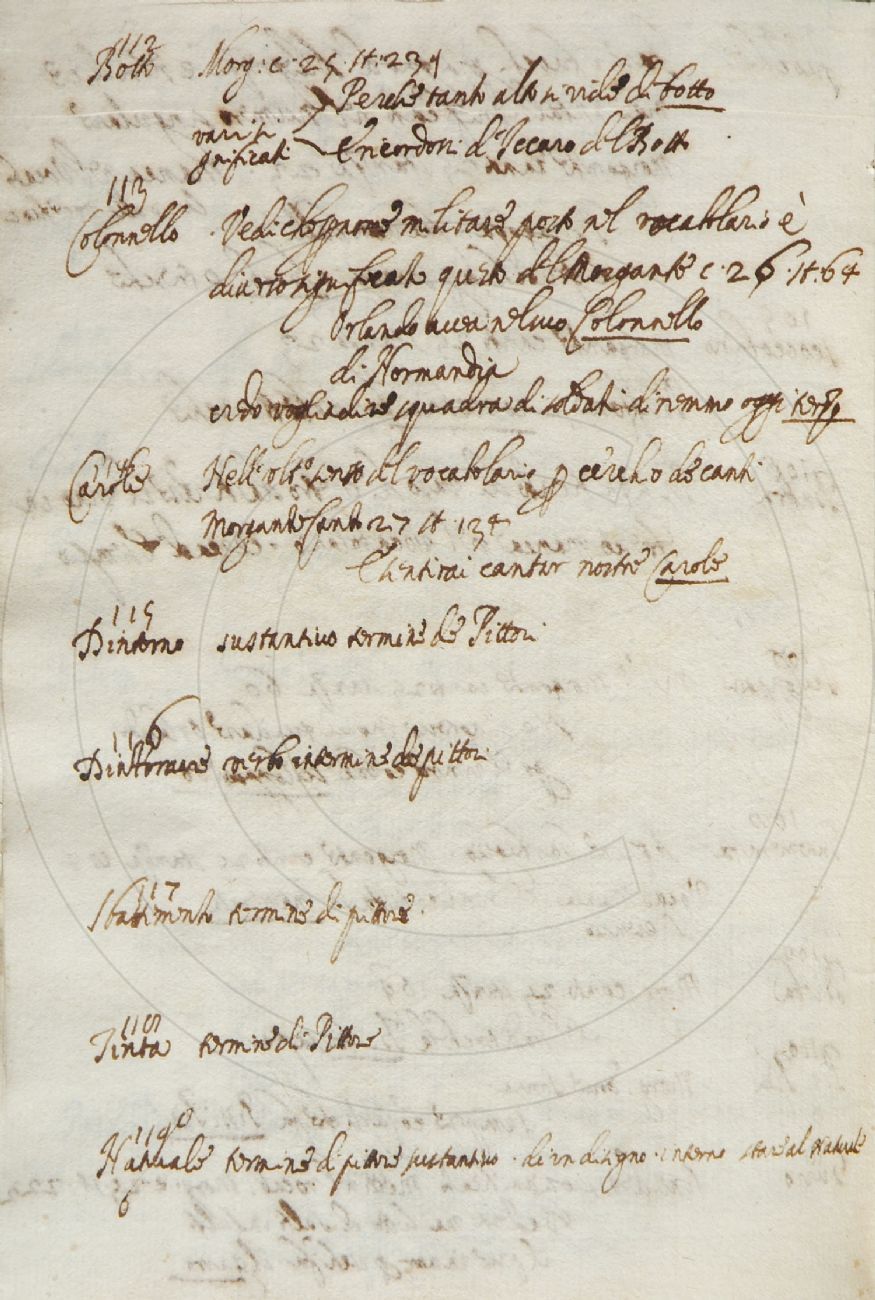 112
Botto Morg: c. 25. st. 231
Perche tanto alto si vide di botto
varii si
gnificati E ricordossi d'Iccaro del Botto
113
Colonnello Vedi che per nome militare posto nel vocabolario è
diverso significato questo del Morgante c. 26. st. 64
Orlando avea nel suo Colonnello
di Normandia
credo voglia dire squadra di soldati diremmo oggi terzo
114
Carole Nell' senso del vocabolario p cerchio de canti
Morgante Canto 27 st. 134
E sentirai cantar nostre Carole
115
Dinterno sustantivo termine de Pittori
116
Dintornare verbo in termine de pittori
117
Sbattimento termine di pittore
118
Tinta termine di Pittore
119
Naturale termine di pittore sustantivo. di un disegno. interno stare al Naturale
6